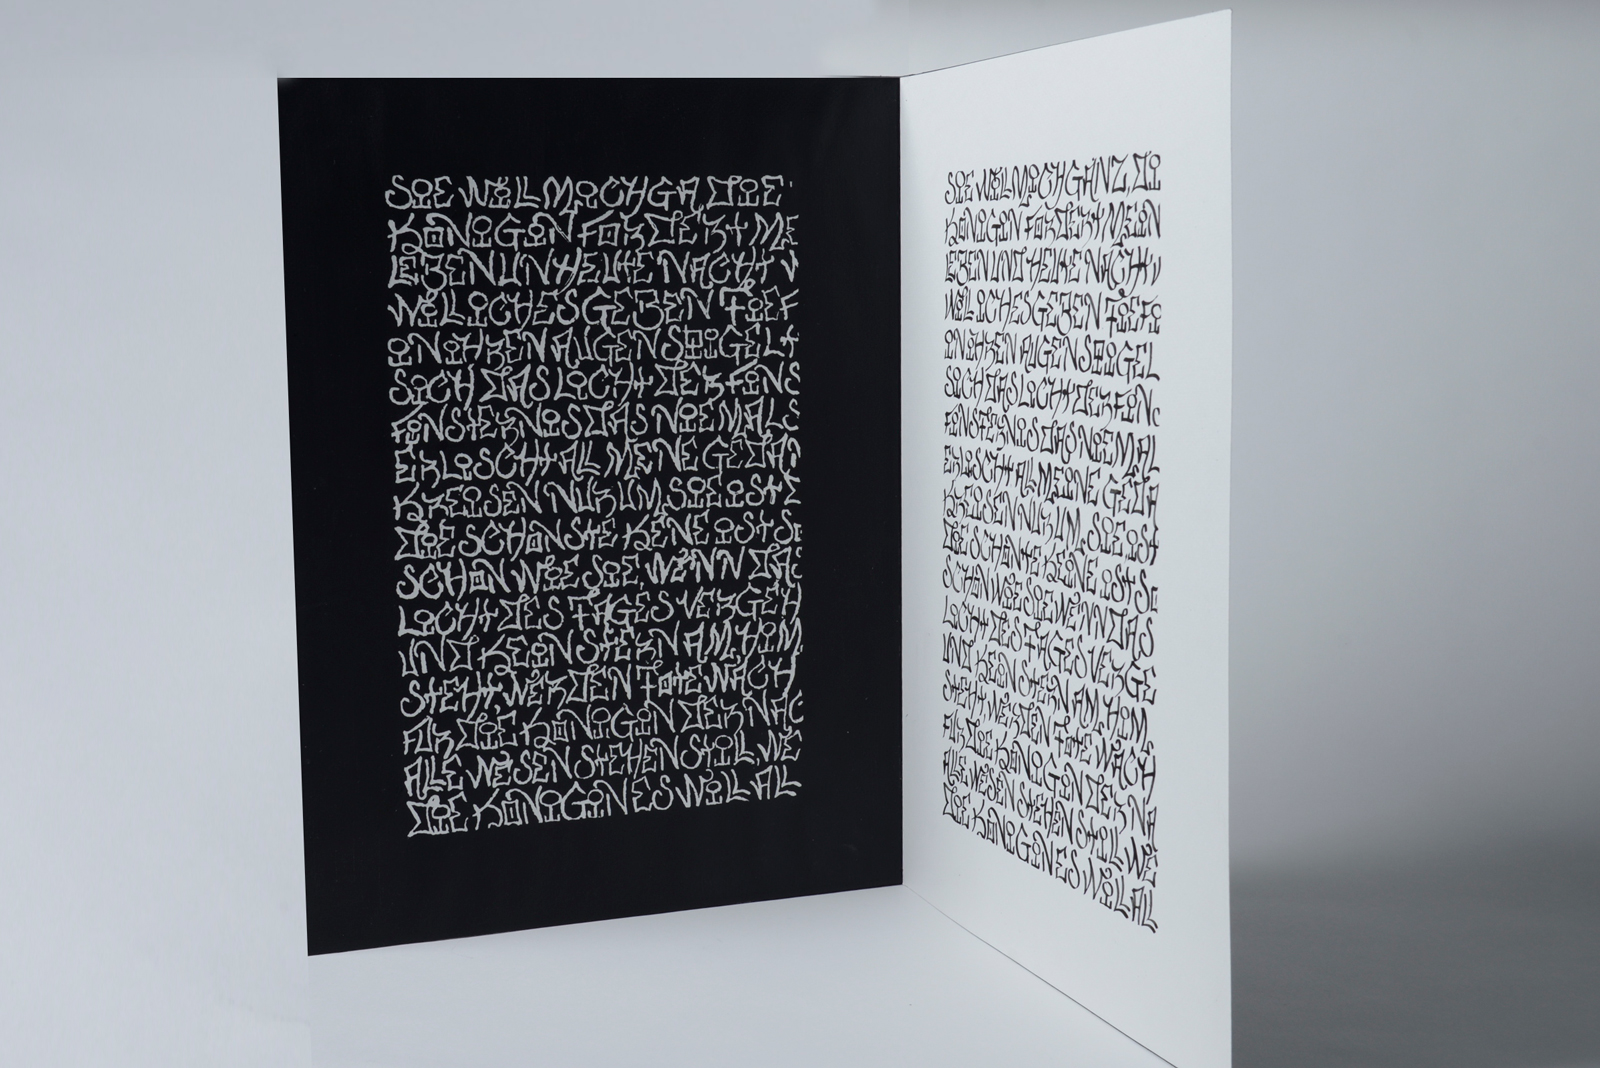 SIE WILL MICH GA, DIE
KÖNIGIN FORDERT ME
LEBEN UN HEUTE NACHT
WILL ICH ES GEBEN TIEF
IN IHREN AUGEN SPIGELT
SICH DAS LICHT DER FINS
FINSTERNIS DAS NIEMALS
ERLISCHT ALL MENE GEDA
KREISEN NUR UM, SIE IST
DIE SCHÖNSTE KENE IST
SCHÖN WIE SIE. WENN DAS
LICHT DES TAGES VERGEH
UND KEIN STERN AM, HIM
STEHT, WERDEN TOTE WACH
FÜR DIE KÖNIGIN DER NAC
ALLE WESEN STEHEN STILL, WE
DIE KÖNIGIN ES WILL ALL
SIE WILL MICH GANZ, DI
KÖNIGIN FORDERT MEIN
LEBEN UND HEUTE NACHT
WILL ICH ES GEBEN TIEF
IN IHREN AUGEN SPIGEL
SICH DAS LICHT DER FINS
FINSTERNIS DAS NIEMAL
ERLISCHT ALL MEINE GEDA
KREISEN NUR UM, SIE IST
DIE SCHÖNTE KEINE IST SC
SCHÖN WIE SIE WENN DAS
LICHT DES TAGES VERGE
UND KEIN STERN AM, HIM
STEHT, WERDEN TOTE WACH
FÜR DIE KÖNIGIN DER NA
ALLE WESEN STEHEN STILL WE
DIE KÖNIGIN ES WILL ALL